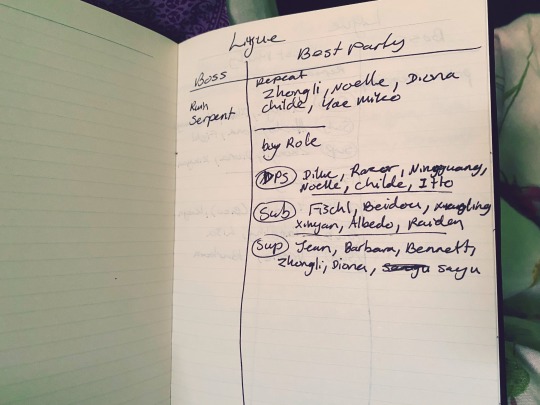 Liyue
Boss
Best Party
Ruin
Serpent
Repeat
Zhongli, Noelle, Diona
Childe, Yae Miko
by Role
DPS Diluc, Razor, Ningguang,
Noelle, Childe, Itto
Sub Fischl, Beidou, Xiangling
Xinyan, Albedo, Raiden
Sup Jean, Barbara, Bennett,
Zhongli, Diona, sayu